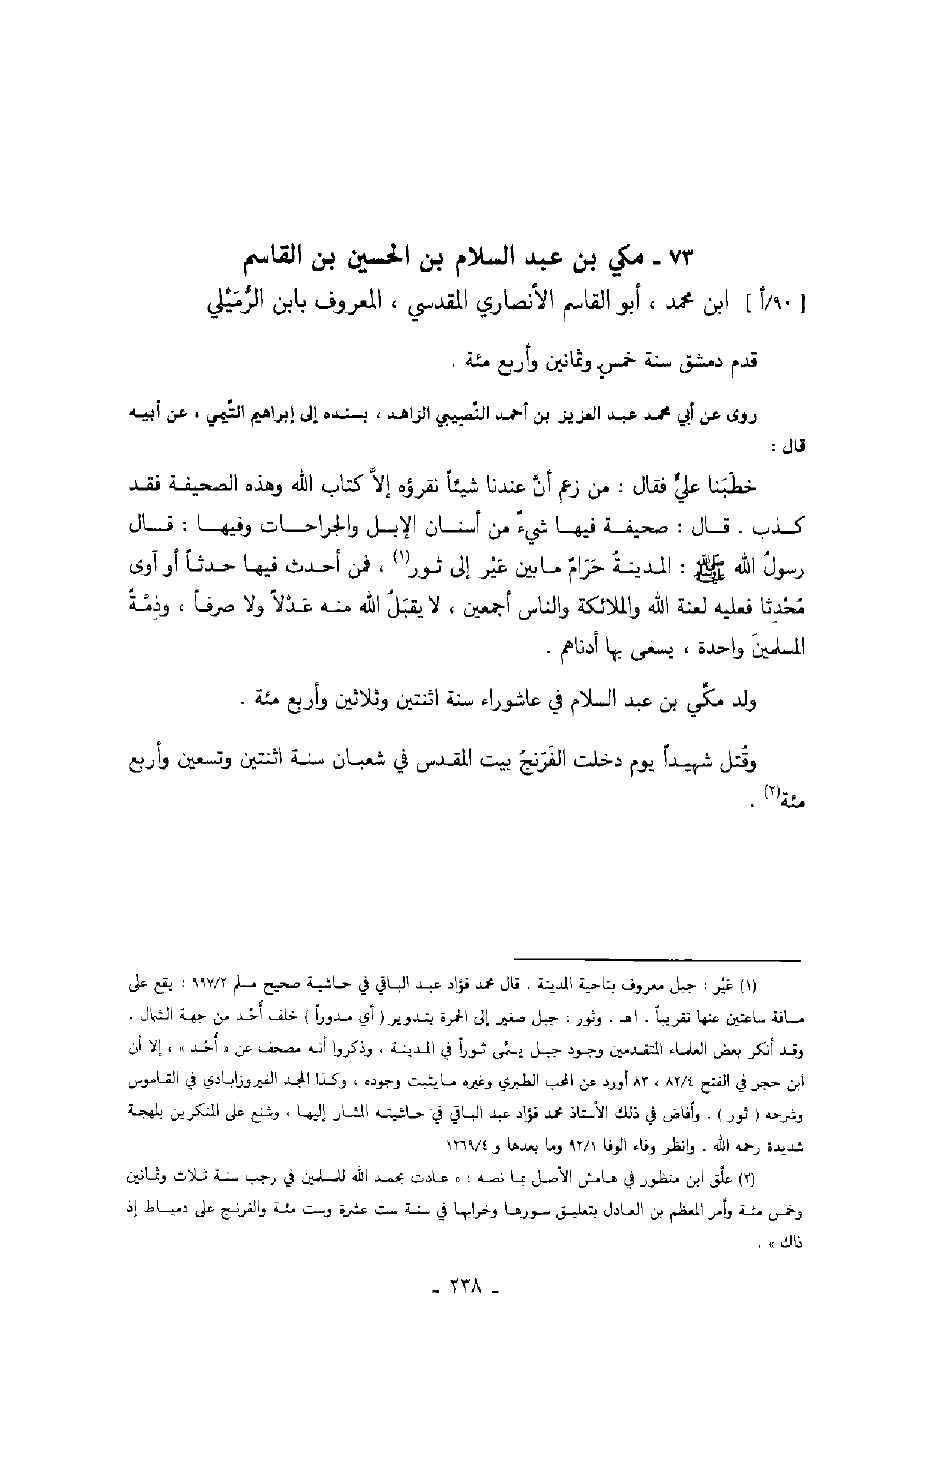 ٧٣ ـ مكي بن عبد السلام بن الحسين بن القاسم
[ ٩٠/أ ] ابن محمد ، أبو القاسم الأنصاري المقدسي ، المعروف بابن الرُّمَيْلي
قدم دمشق سنة خمسٍ وثمانين وأربع مئة .
روى عن أبي محمد عبد العزيز بن أحمد النَّصيبي الزاهد ، بسنده إلى إبراهيم التَّيمي ، عن أبيه
قال :
خطَبَنا عليٌّ فقال : من زعم أنَّ عندنا شيئاً نقرؤه إلاَّ كتاب الله وهذه الصحيفة فقد
كذب . قال : صحيفة فيها شيءٌ من أسنان الإبل والجراحات وفيها : قال
رسولُ الله ﷺ : المدينةُ حَرَامٌ مابين عَيْر إلى ثور(١) ، فمن أحدث فيها حدثاً أو آوى
مُحْدِثا فعليه لعنة الله والملائكة والناس أجمعين ، لا يقبَلُ الله منه عَدْلاً ولا صرفاً ، وذِمَّةُ
المسلمينَ واحدة ، يسعى بها أدناهم .
ولد مكّي بن عبد السلام في عاشوراء سنة اثنتين وثلاثين وأربع مئة .
وقُتل شهيداً يوم دخلت الفَرَنجُ بيت المقدس في شعبان سنة اثنتين وتسعين وأربع
مئة(٢) .
(١) عَيْر : جبل معروف بناحية المدينة . قال محمد فؤاد عبد الباقي في حاشية صحيح مسلم ٩٩٧/٢ : يقع على
مسافة ساعتين عنها تقريباً . اهـ . وثور : جبل صغير إلى الحمرة بتدوير ( أي مدوراً ) خلف أُحُد من جهة الشمال .
وقد أنكر بعض العلماء المتقدمين وجود جبل يسمَّى ثوراً في المدينة ، وذكروا أنه مصحف عن « أُحُد » ، إلا أن
ابن حجر في الفتح ٨٢/٤ ، ٨٣ أورد عن المحب الطبري وغيره مايثبت وجوده ، وكذا المجد الفيروزابادي في القاموس
وشرحه ( ثور ) . وأفاض في ذلك الأستاذ محمد فؤاد عبد الباقي في حاشيته المشار إليها ، وشنع على المنكرين بلهجة
شديدة رحمه الله . وانظر وفاء الوفا ٩٢/١ وما بعدها و ١٢٦٩/٤
(٢) علَّق ابن منظور في هامش الأصل بما نصه : « عادت بحمد الله للمسلمين في رجب سنة ثلاث وثمانين
وخمس مئة وأمر المعظم بن العادل بتعليق سورها وخرابها في سنة ست عشرة وست مئة والفرنج على دمياط إذ
ذاك » .
ـ ٢٣٨ ـ